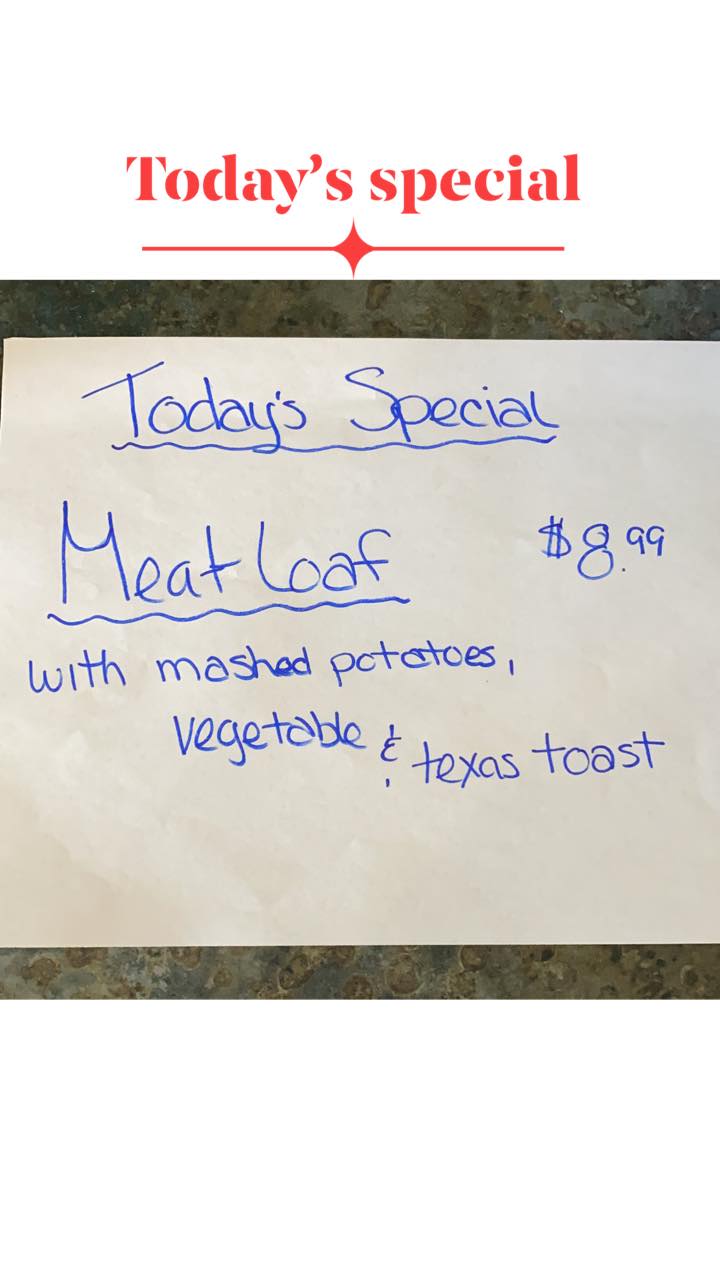 Today's special
Today's Special
Meatloaf $8.99
with mashed potatoes,
vegetable & texas toast